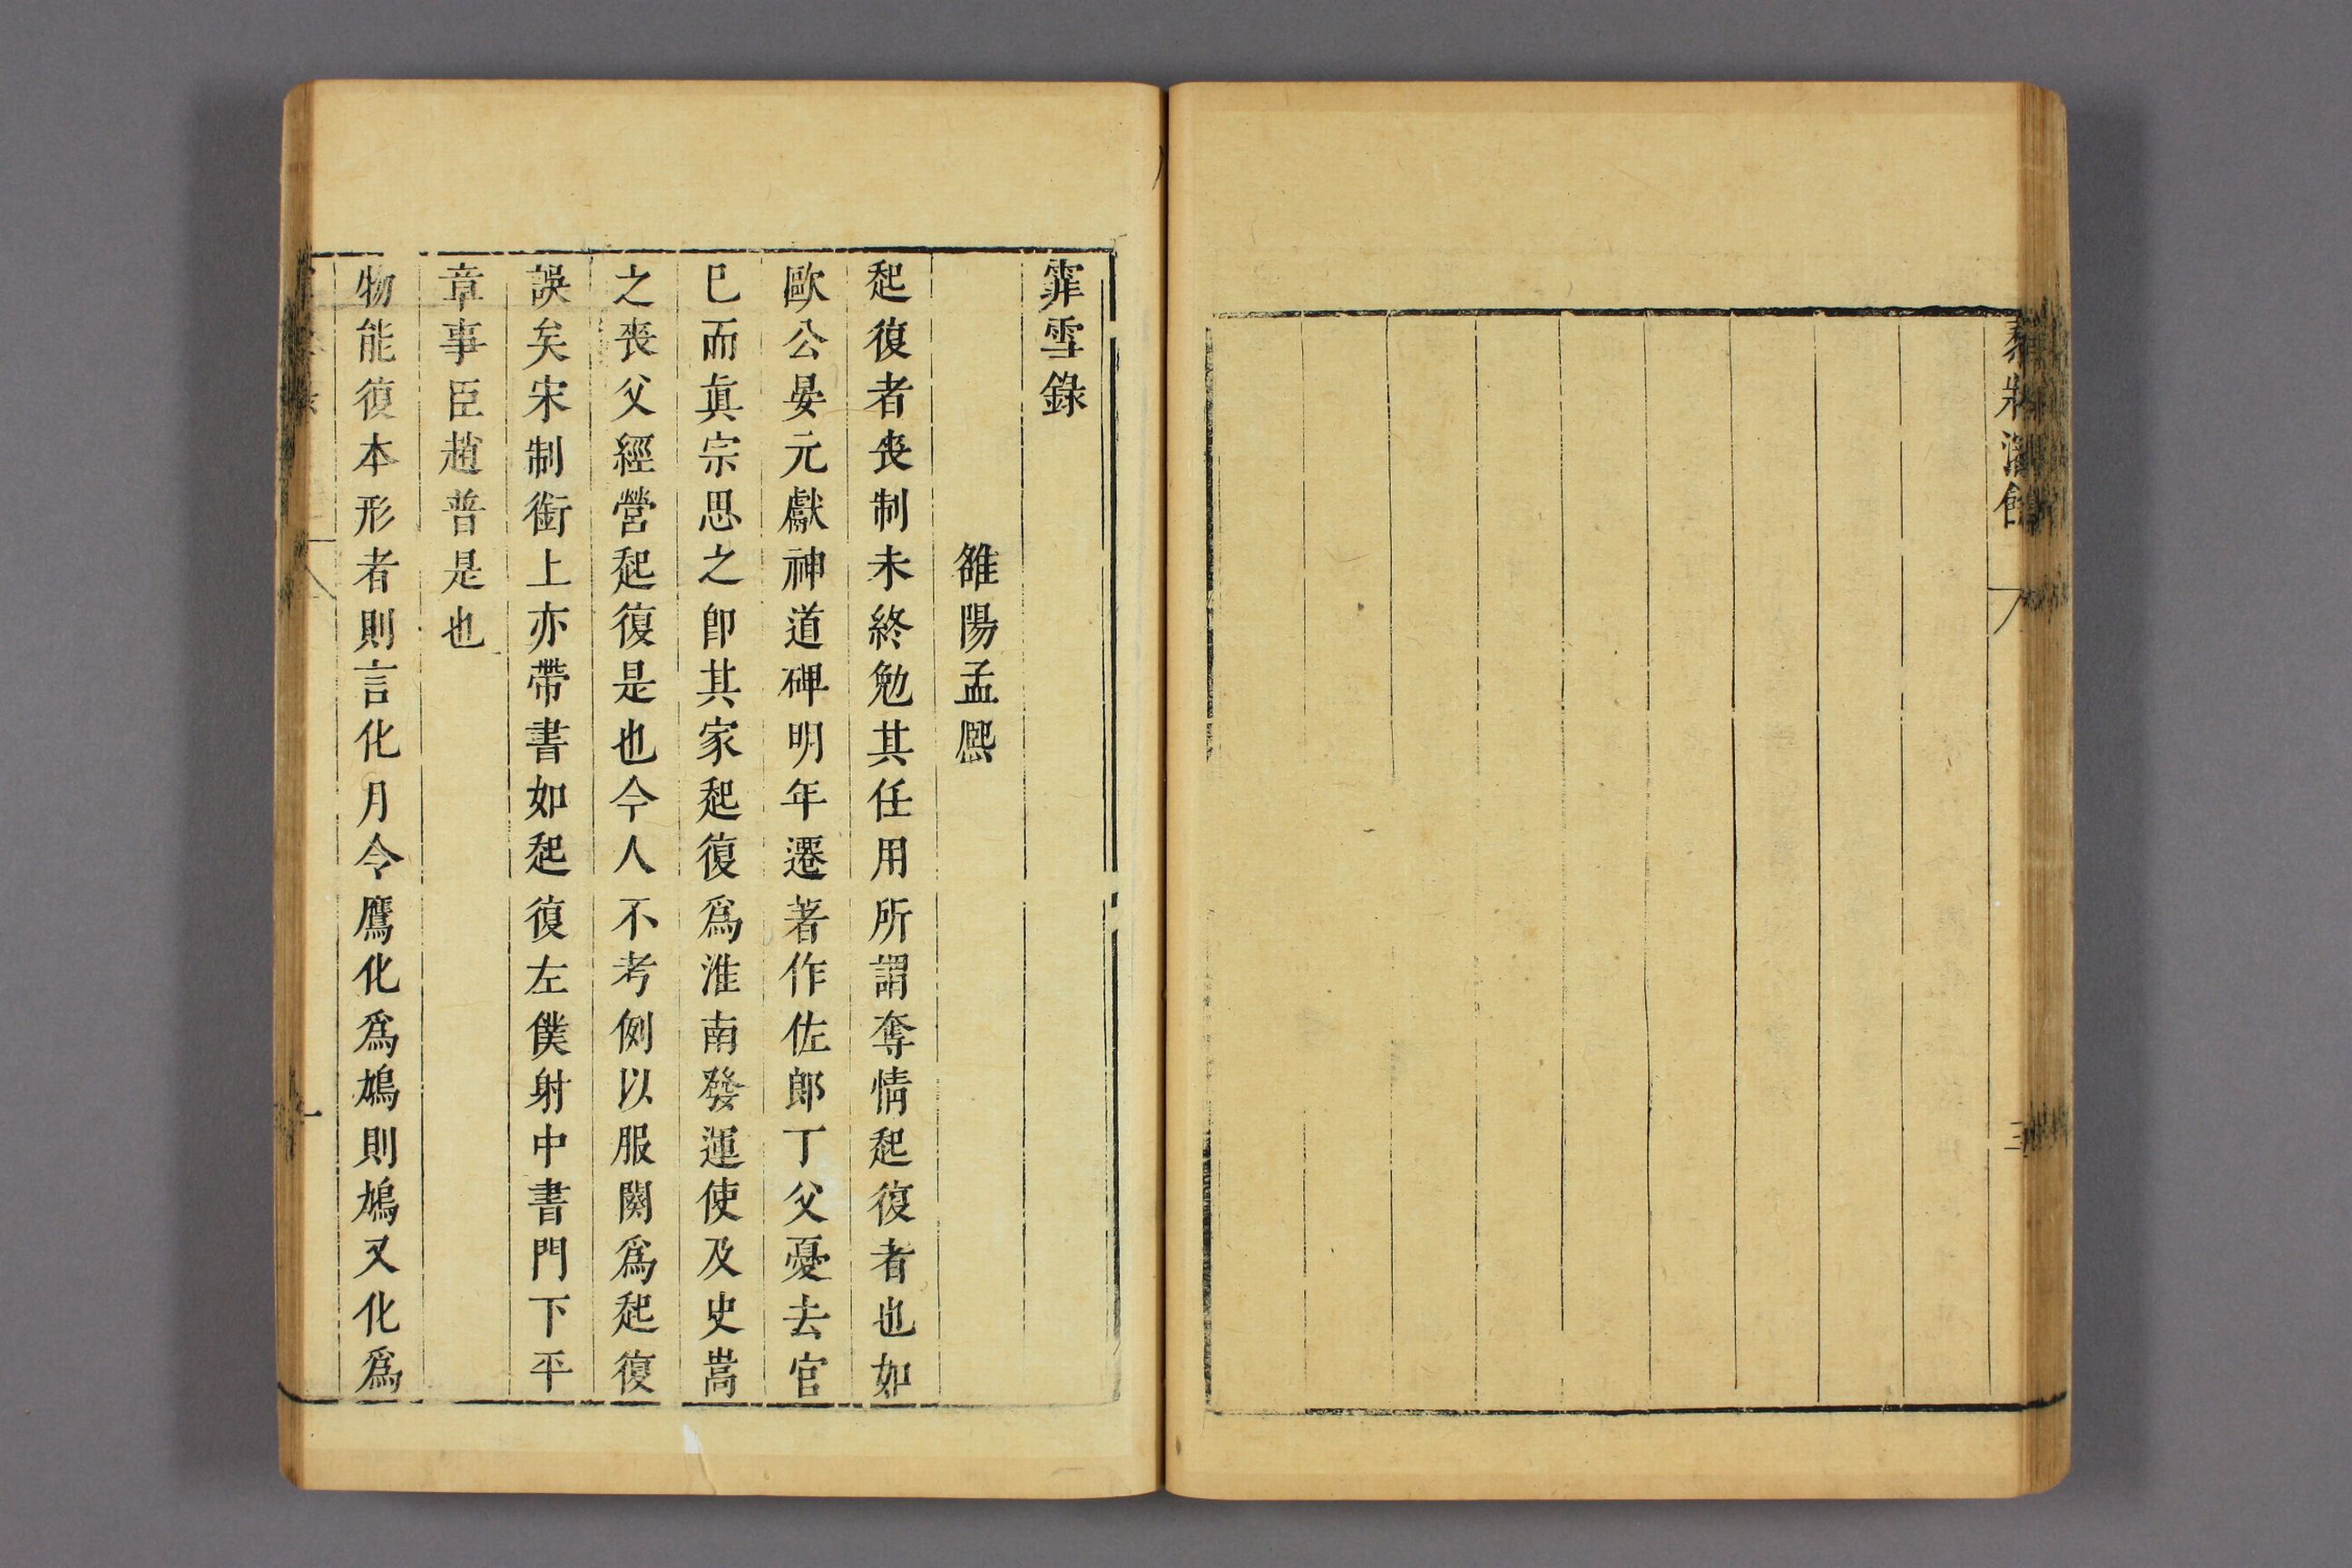 三
霏雪錄
雒陽孟熙
起復者丧制未終勉其任用所謂奪情起復者也如
歐公晏元獻神道碑明年遷著作佐郎丁父憂去官
巳而眞宗思之卽其家起復爲淮南發運使及史嵩
之丧父經營起復是也今人不考例以服闋爲起復
誤矣宋制銜上亦帶書如起復左僕射中書門下平
章事臣趙普是也
物能復本形者則言化月令鷹化爲鳩則鳩又化爲
一